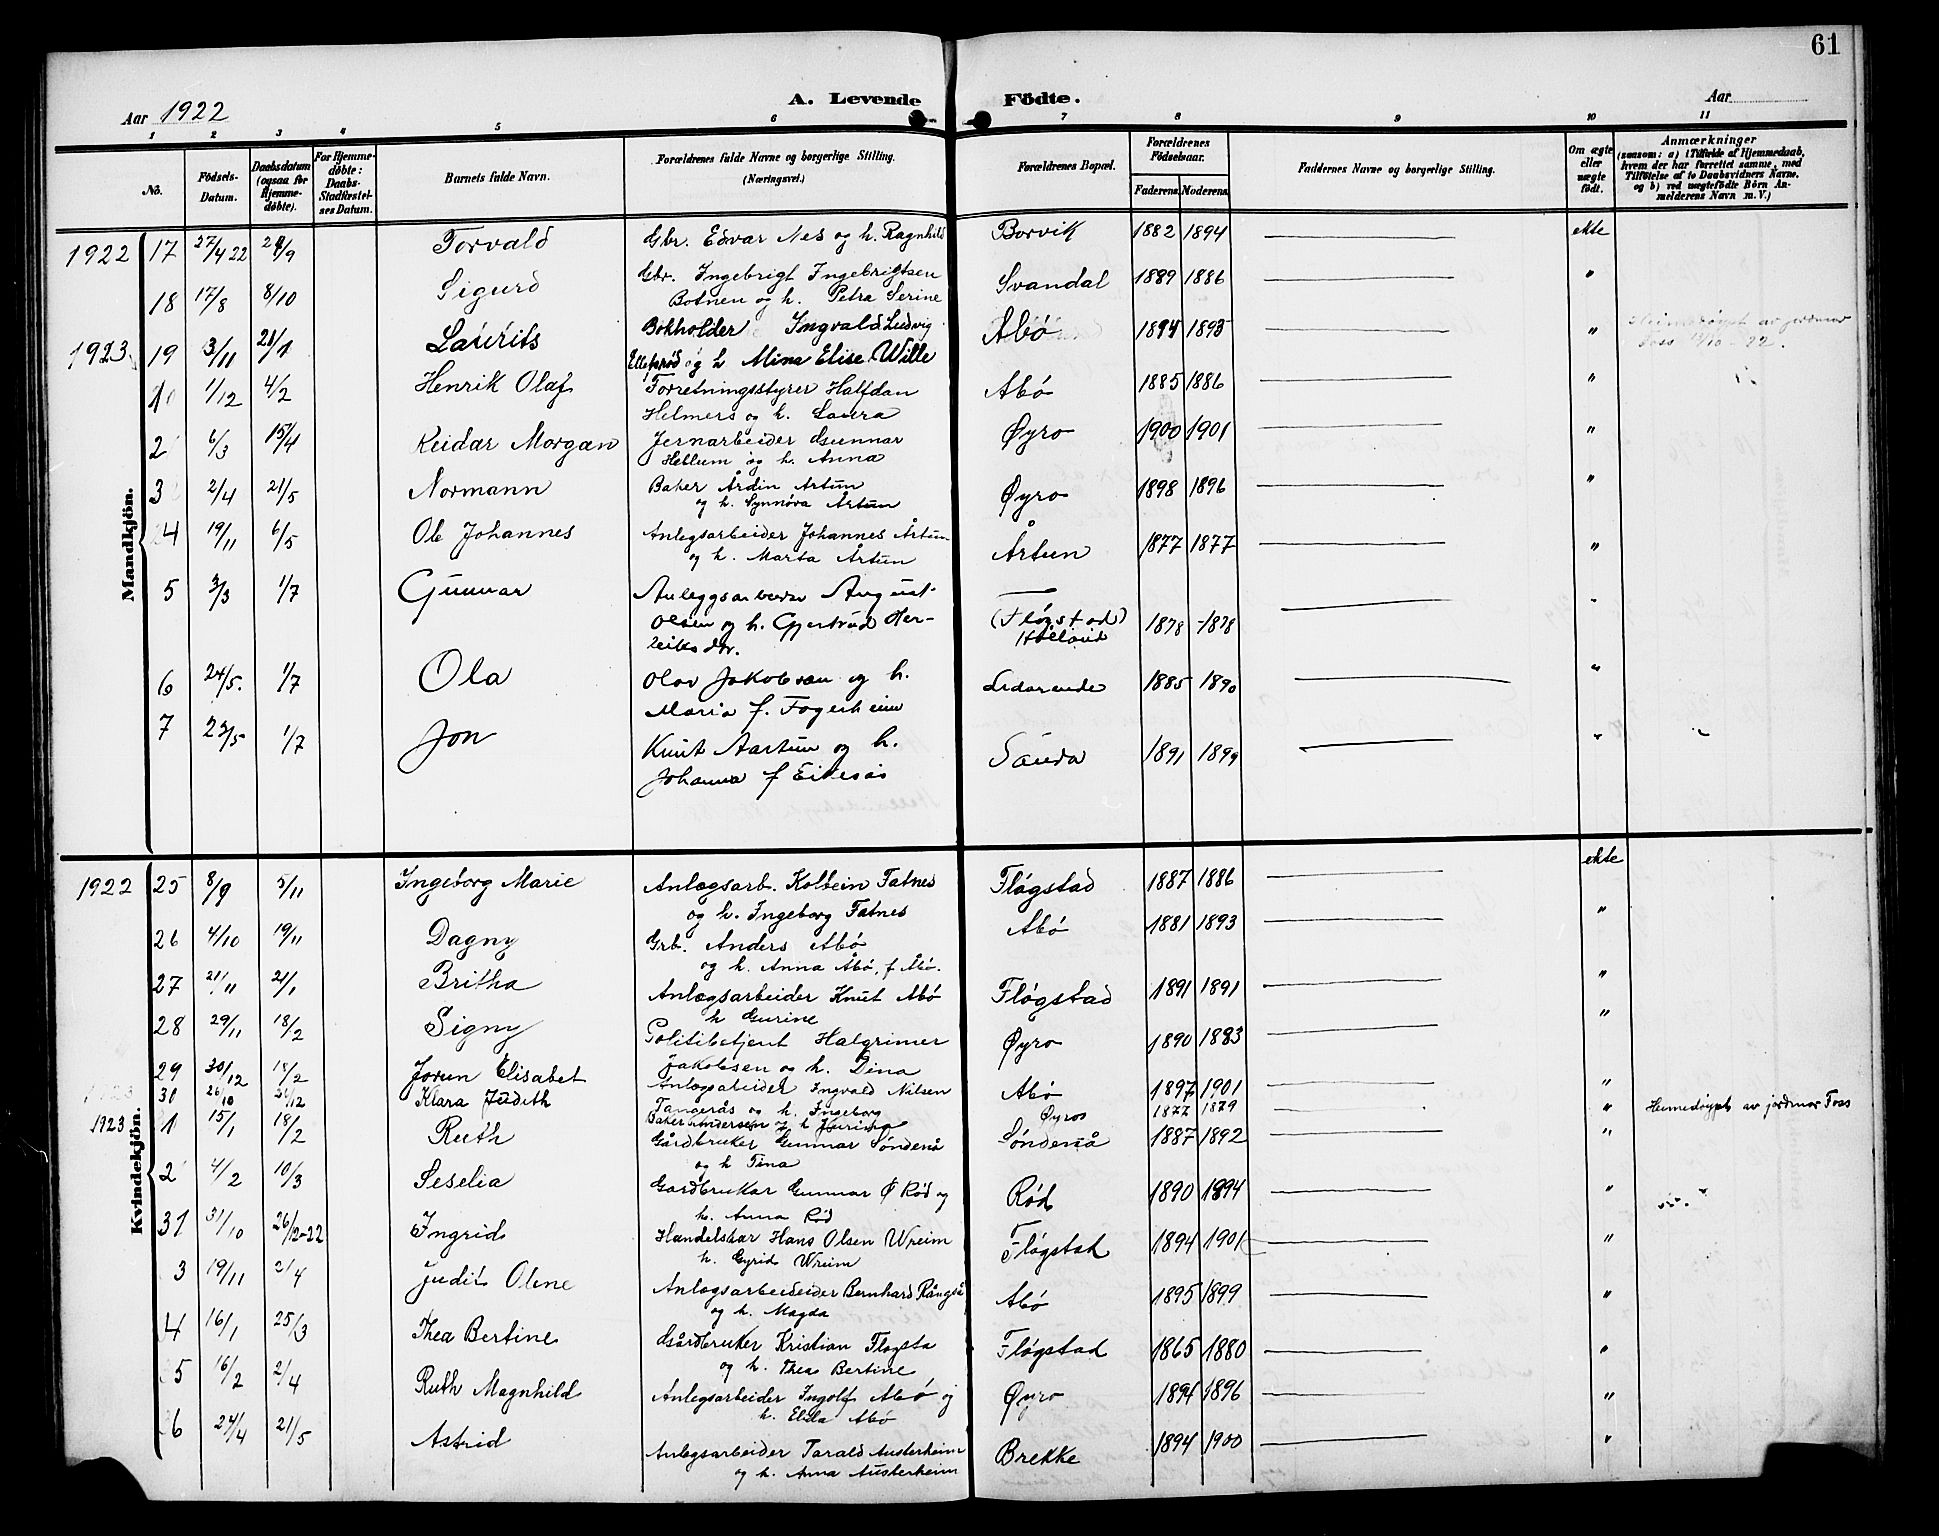 61
Aar 1922
A. Levende Födte.
Aar
1 2 3 4 5 6 7 8 9 10 11
No.
Födsels-Datum.
Daabsdatum (ogsaa for Hjemme-döbte).
For Hjemme-döbte: Daabs-Stadfæstel-ses Datum.
Barnets fulde Navn.
Forældrenes fulde Navne og borgerlige Stilling. (Næringsvei.)
Forældrenes Bopæl.
Forældrenes Födselsaar.
Faderens. Moderens.
Faddernes Navne og borgerlige Stilling.
Om ægte eller uægte födt.
Anmærkninger
(saasom: a) i Tilfælde af Hjemmedaab, hvem der har forrettet samme, med Tilföielse af to Daabsvidners Navne, og b) ved uægtefödte Börn An-melderens Navn m. V.)
Mandkjön.
1922 17 27/4 22 24/9 Torvald Gbr. Edvar Nes og h. Ragnhild Borvik 1882 1894 ekte
18 17/8 8/10 Sigurd Gbr. Ingebrigt Ingebrigtsen Svandal 1889 1886 "
Botnen og h. Petra Serine
1923 19 3/11 21/1 Laurits Bokholder Ingvald Ludvig Åbø 1894 1895 " Heimedøypt av jordmor
og h Mina Elise Wille Foss 22.
1 1/12 4/2 Henrik Olaf Forretningsstyrer Halfdan Abø 1885 1886 "
Helmers og h. Laura
2 6/3 15/4 Reidar Morgan Jernarbeider Gunnar Øyro 1900 1901 "
Hellum og h. Anna
3 2/4 21/5 Normann Baker Årdin Artun Øyro 1898 1896 "
og h. Synnøva Årtun
4 19/11 6/5 Ole Johannes Anlegsarbeider Johannes Årtun Årtun 1877 1877 "
og h. Marta Årtun
5 3/3 1/7 Gunnar Anleggsarbeider August (Fløgstad) 1878 -1878 "
Olsen og h. Gjertrud Her-
leiksdtr.
6 24/5. 1/7 Ola Olav Jakobsen og h. 1885 1890 "
Maria f. Fagerheim
7 23/5 1/7 Jon Knut Aartun og h. Sauda 1891 1899 "
Johanna f Eikesås
Kvindekjön.
1922 25 8/9 5/11 Ingeborg Marie Anlægsarb. Kolbein Fatnes Fløgstad 1887 1886 ekte
og h. Ingeborg Fatnes
26 4/10 19/11 Dagny Grb. Anders Abø Abø 1881 1893 "
og h. Anna Åbø, f Åbø.
27 21/11 21/1 Britha Anlægsarbeider Knut Abø Fløgstad 1891 1891 "
h Gurine
28 29/11 18/2 Signy Politibetjent Halgrimer Øyro 1890 1883 "
Jakobsen og h. Dina
29 30/12 18/2 Jorun Elisabet Anlægsabeider Ingvald Nilsen Abø 1897 1901 "
Tangerås og h. Ingeborg
30 26/10 Klara Judith Baker Andersen og h Øyro 1877 1879 " Heimedøypt av jordmor Foss
1923 1 15/1 18/2 Ruth Gårdbruker Gunnar Søndenå Søndenå 1887 1892 "
og h Tina
2 4/2 10/3 Seselia Gardbrukar Gunnar Ø Rød og Rød 1890 1894 "
h. Anna Rød
31 31/10 26/12-22 Ingrid Handelskar Hans Olsen Wreim Fløgstad 1894 1901 "
h. Gyrid Wreim
3 19/11 2/4 Judit Oline Anlægsarbeideider Bernhard Abø 1895 1899 "
og h. Magda
4 16/1 25/3 Thea Bertine Gårdbruker Kristian Fløgsta Fløgstad 1865 1880 "
og h. Thea Bertine
5 16/2 2/4 Ruth Magnhild Anlegsarbeider Ingolf Abø og Øyro 1894 1896 "
h. Elida Abø
6 24/4 21/5 Astrid Anlegsarbeider Tarald Austerheim Brekke 1894 1900 "
og h. Anna Austerheim